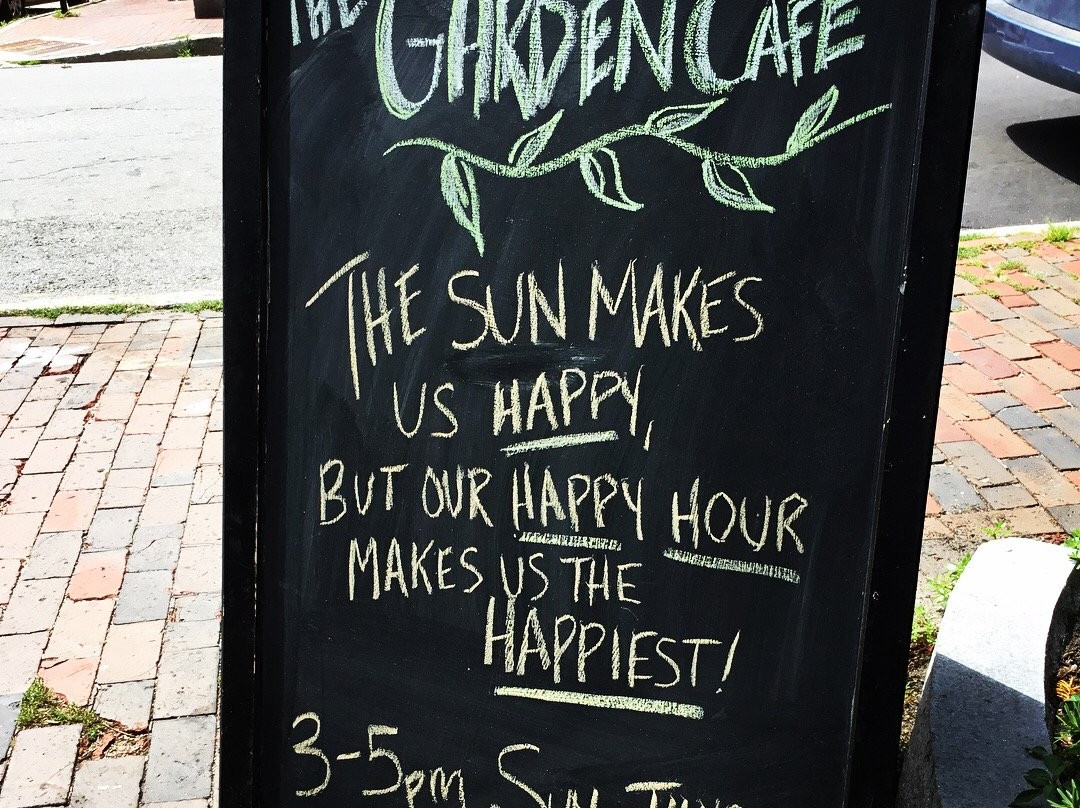 THE GARDEN CAFE
THE SUN MAKES
US HAPPY,
BUT OUR HAPPY HOUR
MAKES US THE
HAPPIEST!
3-5pm Sun-Thurs